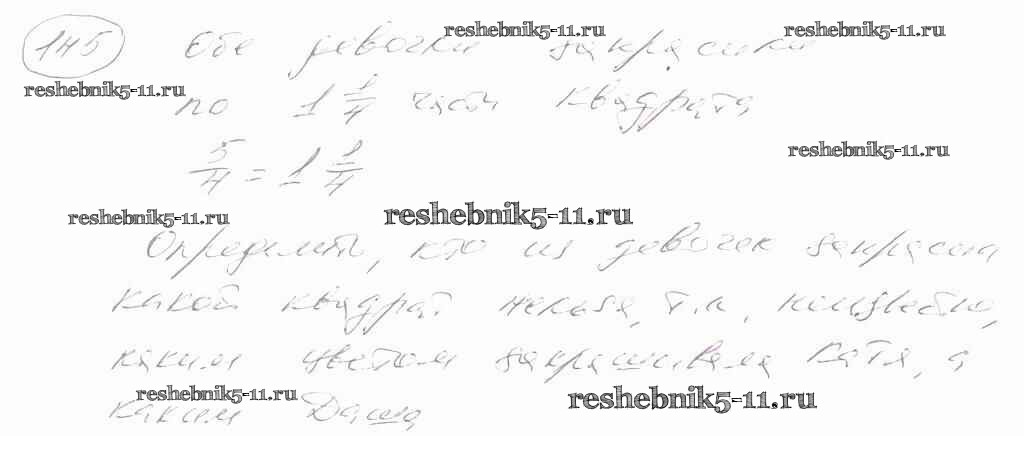 reshebnik5-11.ru reshebnik5-11.ru
145 Обе девочки закрасили
reshebnik5-11.ru
по 1 1/4 части квадрата
reshebnik5-11.ru
5/4 = 1 1/4
reshebnik5-11.ru reshebnik5-11.ru
Определить, кто из девочек закрасил
какой квадрат нельзя, т.к. неизвестно,
каким цветом закрашивала Катя, а
reshebnik5-11.ru reshebnik5-11.ru
каким Даша